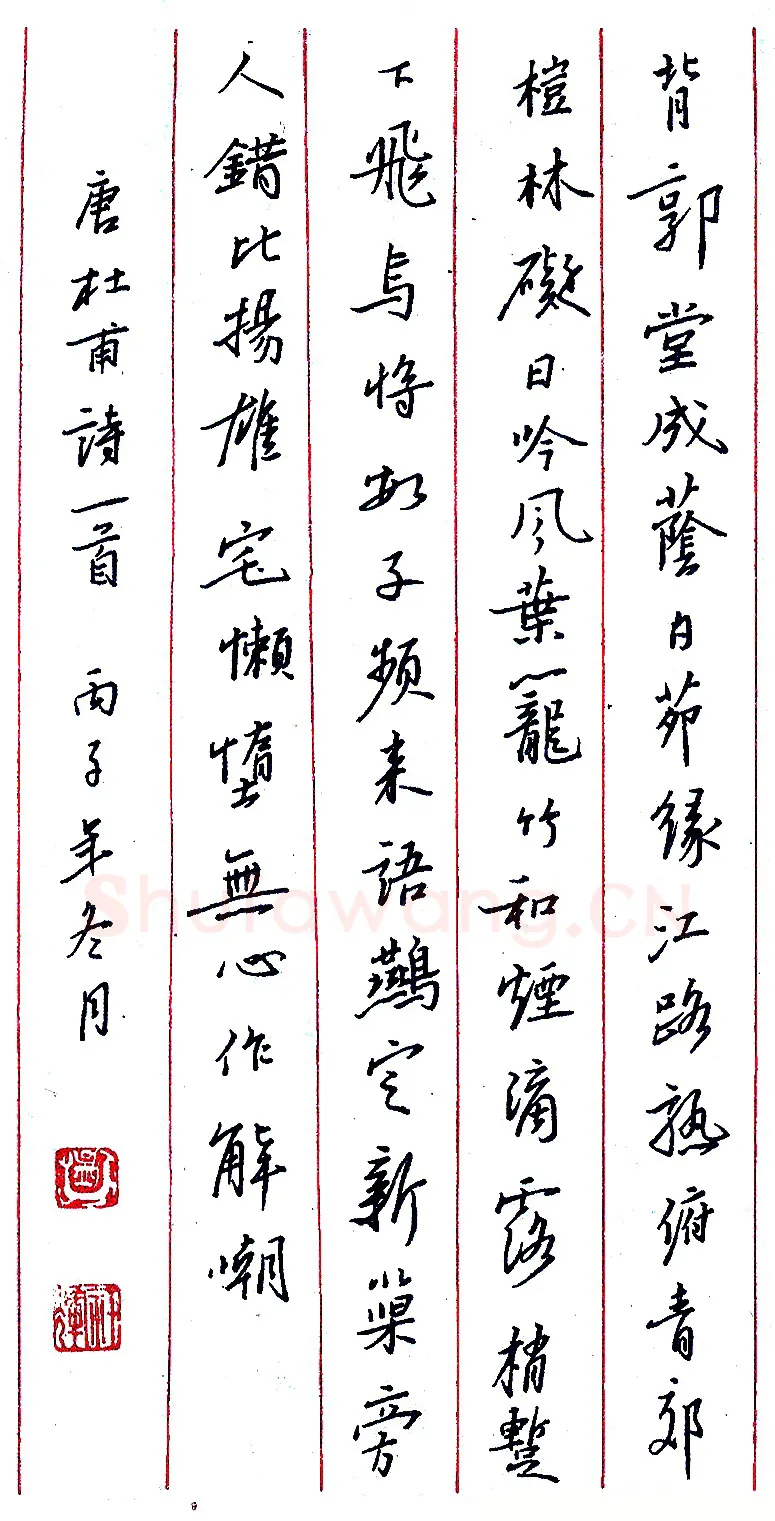 背郭堂成蔭白茆緣江路熟俯青郊
榿林礙日吟風葉籠竹和煙滴露梢暫
下飛烏將數子頻来語鷰定新巢旁
人錯比揚雄宅懶惰無心作解嘲
唐杜甫詩一首 丙子年冬月
Shufawang.CN